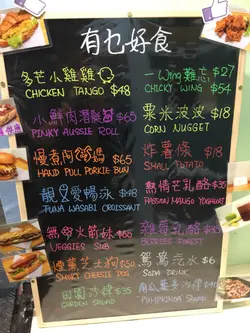 有乜好食
多芒小雞雞
CHICKEN TANGO $48
小鮮肉潛艇
PINKY AUSSIE ROLL $65
慢煮阿豬媽 $65
HAND PULL PORKIE BUN
靚 愛暢泳 $48
TUNA WASABI CROISSANT
無 火箭妹 $50
VEGGIES SUB
煙薰芝士狗 $50
SMOKY CHEESE DOG
田園沙律 $35
GARDEN SALAD
一Wing難忘 $27
CHICKY WING $54
粟米波波 $18
CORN NUGGET
炸薯條 $18
SMALL POTATO
熱情芒乳酪 $35
PASSION MANGO YOGHURT
莓乳酪 $35
BERRIES FOREST
鴛鴦汽水 $6
SODA DRINK
沙律 $40
PUMPKINOA SALAD